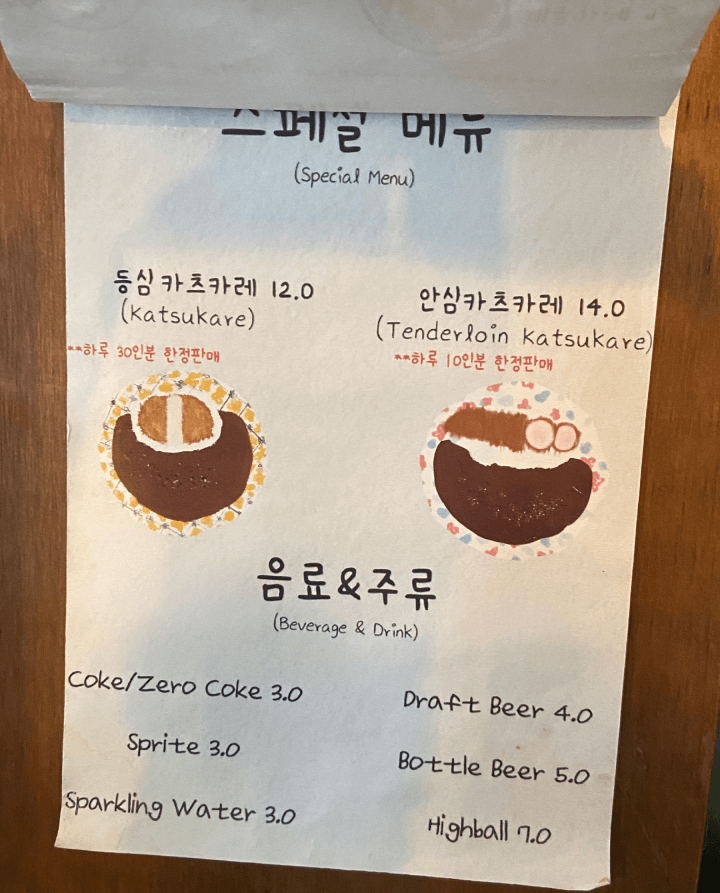 스페셜 메뉴
(Special Menu)
등심카츠카레 12.0
(Katsukare)
**하루 30인분 한정판매
안심카츠카레 14.0
(Tenderloin Katsukare)
**하루 10인분 한정판매
음료&주류
(Beverage & Drink)
Coke/Zero Coke 3.0
Sprite 3.0
Sparkling Water 3.0
Draft Beer 4.0
Bottle Beer 5.0
Highball 7.0